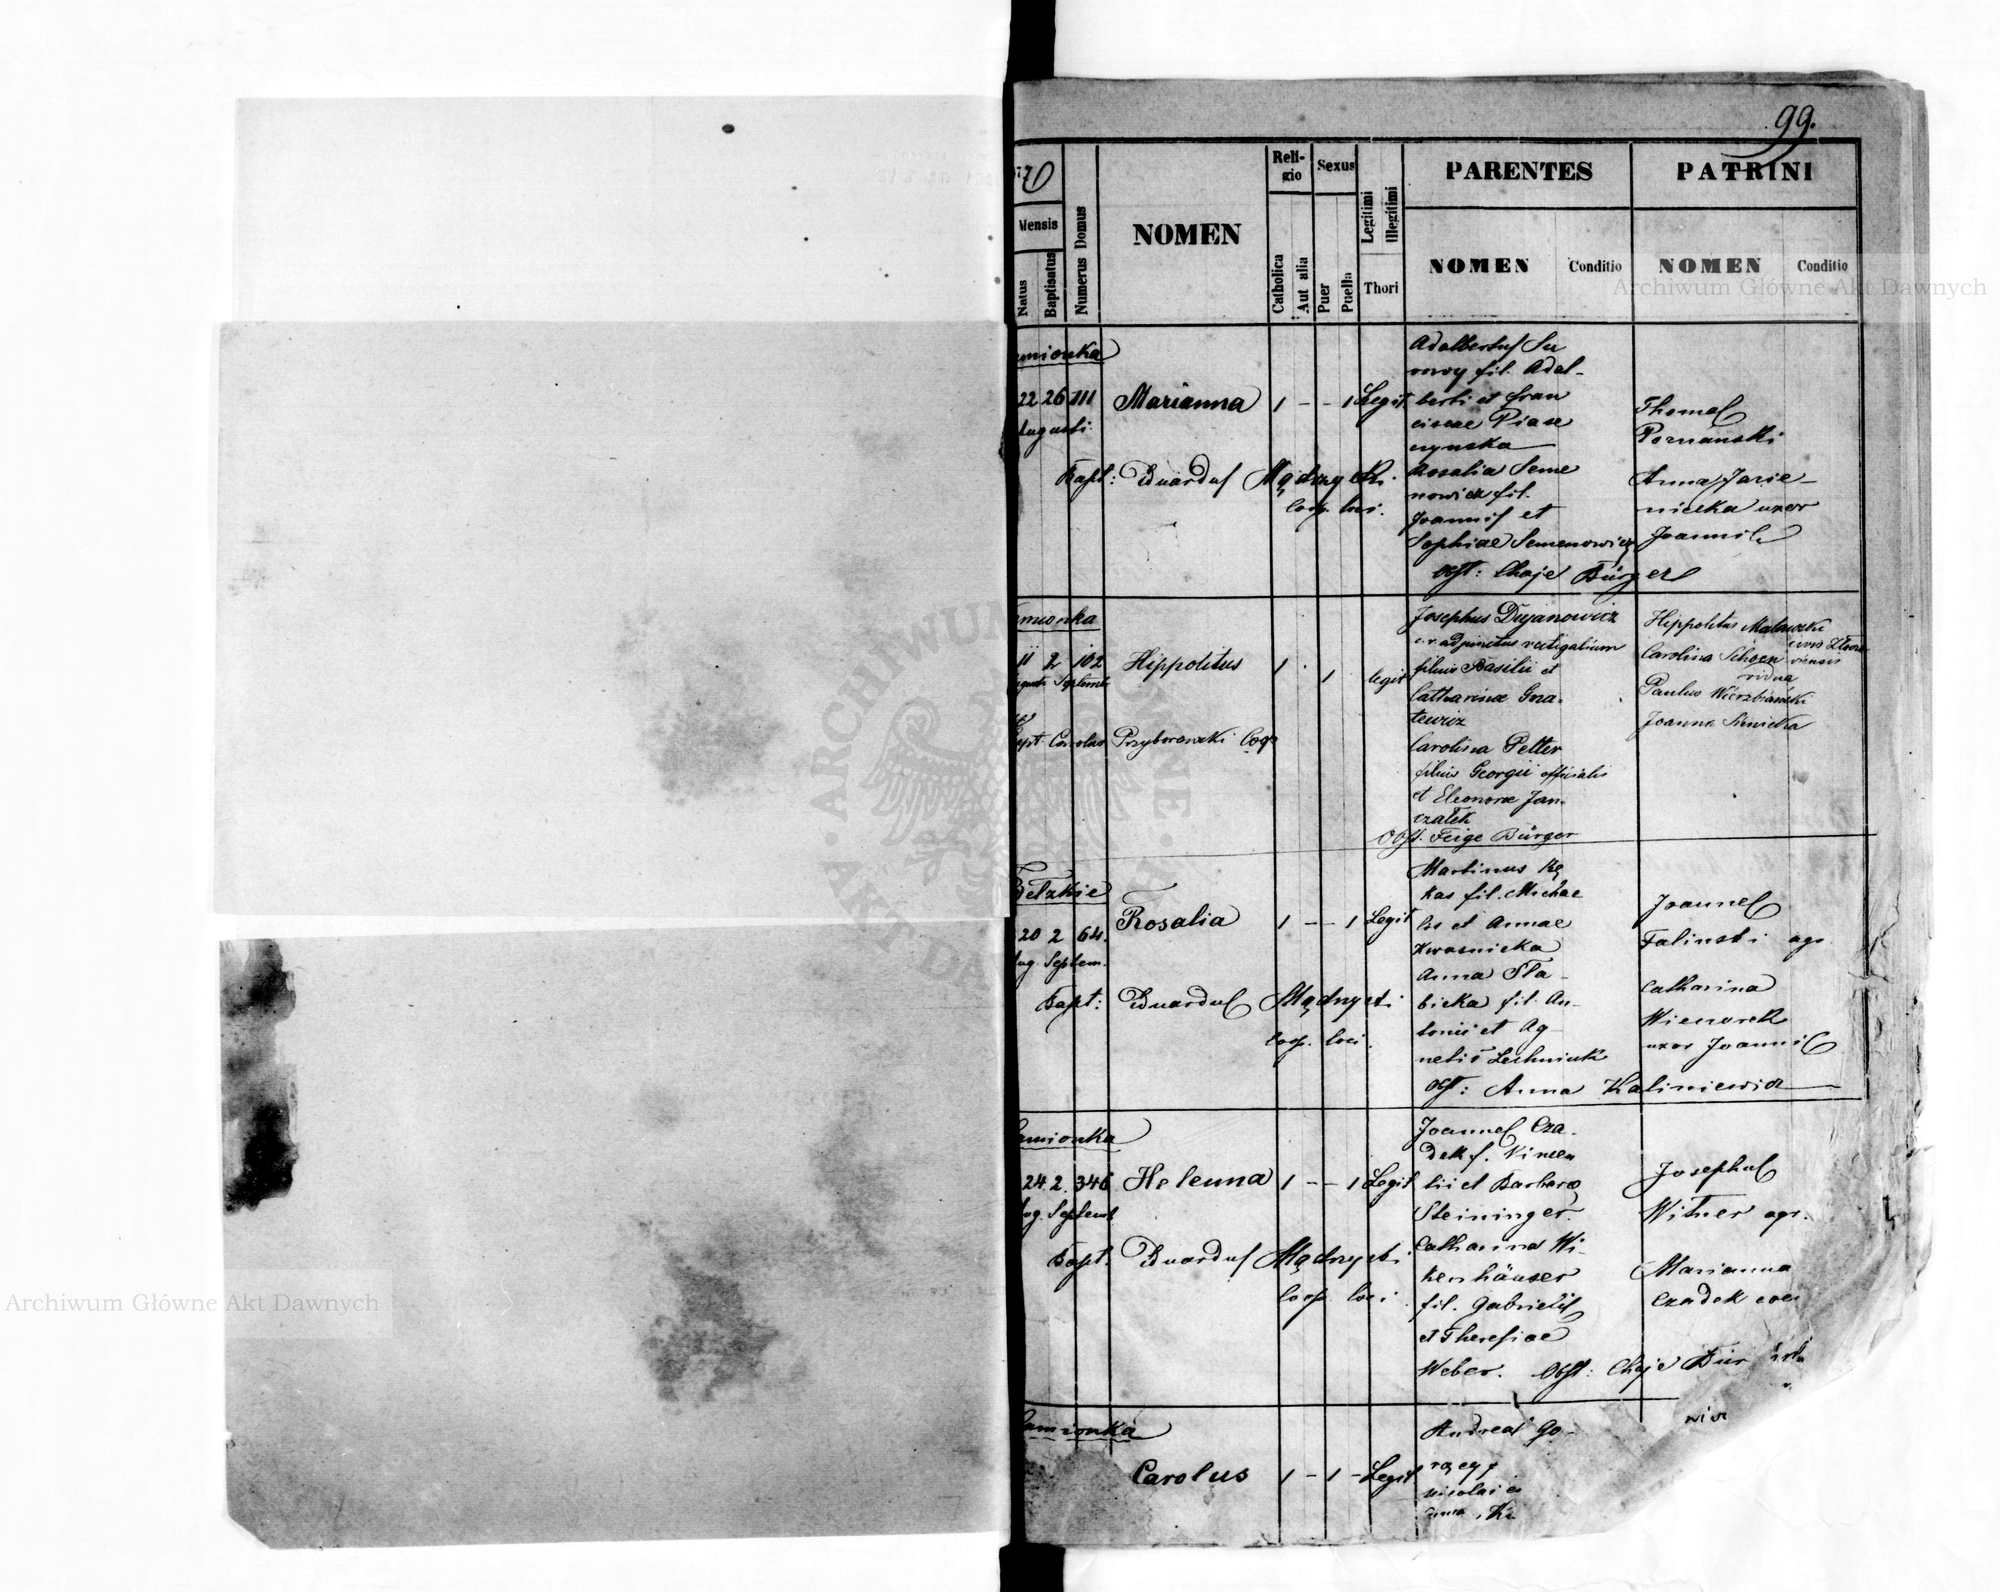 99.
70
Mensis
Natus
Baptisatus
Numerus Domus
NOMEN
Reli-
gio
Catholica
Aut alia
Sexus
Puer
Puella
Legitimi
Illegitimi
Thori
PARENTES
NOMEN
Conditio
PATRINI
NOMEN
Conditio
Archiwum Główne Akt Dawnych
amionka
22 26 111
Augusti
Marianna 1 - - 1 Legit
Bapt: Eduardus Mądrzycki
Coop. loci.
Adalbertus Su
rowy fil. Adal-
berti et Fran
ciscae Piase
czynska
Rosalia Seme
nowicz fil.
Joannis et
Sophiae Semenowicz
Obst: Chaje Bürger
Thomas
Poznanski
Anna Jasie-
niecka uxor
Joannis
amionka
11 2 102
Augusti Septemb
Hippolitus 1 . 1 legit
Bapt Carolus Przyborowski Coop
Josephus Dujanowicz
c.r. adjunctus vectigalium
filius Basilii et
Catharinae Gna-
tewicz
Carolina Petter
filius Georgii officialis
et Eleonorae Jan-
czatek
Obst. Feige Bürger
Hippolitus Malawski
civis
Carolina Schoen
vidua
Paulus Wierzbiański
Joanna Sienicka
Betzkie
20 2 64.
Aug. Septem.
Rosalia 1 - - 1 Legit
Bapt: Eduardus Mądrzycki
Coop. loci.
Martinus Rę
kas fil. Michae
lis et Annae
Kwasnicka
Anna Sła-
bicka fil. An-
tonii et Ag-
netis Lechniuk
Obst: Anna Kaliniewicz
Joannes
Falinski agr.
Catharina
Wienorek
uxor Joannis
amionka
24. 2. 346
Aug. Septemb
Helenna 1 - - 1 Legit
Bapt. Eduardus Mądrzycki
Coop loci.
Joannes Cza-
dek f. Vincen
tii et Barbarae
Steininger.
Catharina Wi-
kenhäuser
fil. Gabrielis
et Theresiae
Weber. Obst: Chaje Bür
Josephus
Witner agr.
Marianna
Czadek
amionka
Carolus 1 - 1 - Legit
Andreas Go-
Nicolai
Archiwum Główne Akt Dawnych
ARCHIWUM GŁÓWNE AKT DAWNYCH